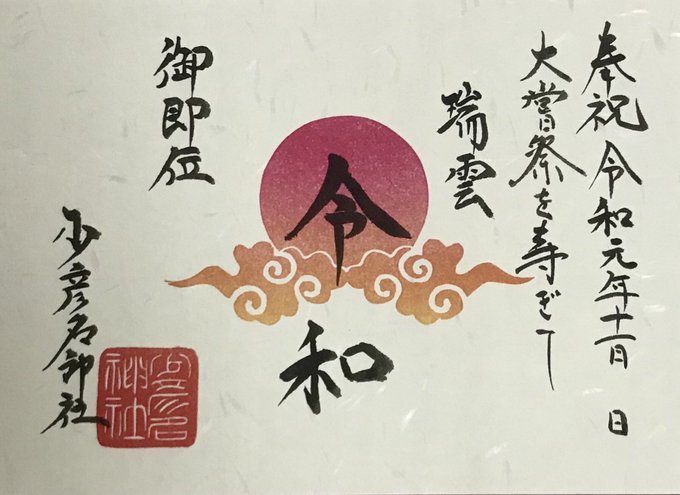 奉祝 令和元年十一月 日
大嘗祭を寿ぎて
瑞雲
令和
御即位
少彦名神社
少彦名
神社